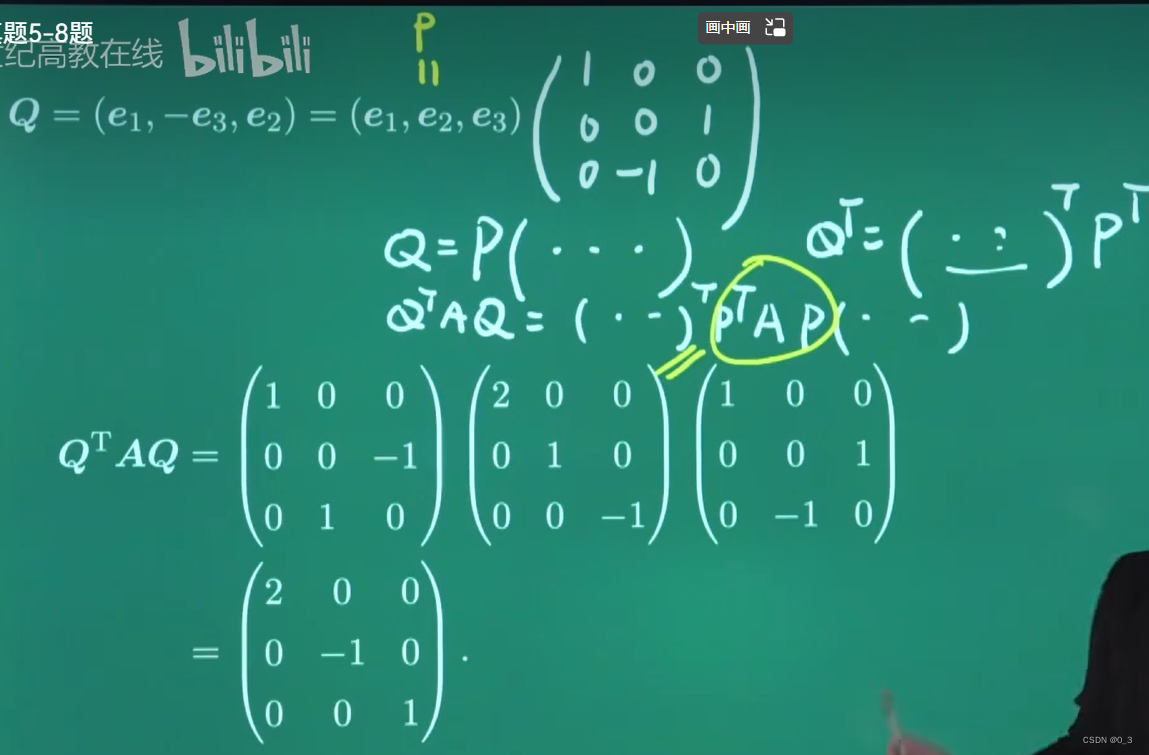 真题5-8题
纪高教在线 bilibili
画中画
P
=
Q = (e₁, −e₃, e₂) = (e₁, e₂, e₃) ( 1 0 0
0 0 1
0 −1 0 )
Q = P( · · · )
Qᵀ = ( · · · )ᵀ Pᵀ
QᵀAQ = ( · · )ᵀ PᵀAP ( · · )
QᵀAQ = ( 1 0 0 ) ( 2 0 0 ) ( 1 0 0 )
( 0 0 −1 ) ( 0 1 0 ) ( 0 0 1 )
( 0 1 0 ) ( 0 0 −1 ) ( 0 −1 0 )
= ( 2 0 0 )
( 0 −1 0 ) .
( 0 0 1 )
CSDN @0_3